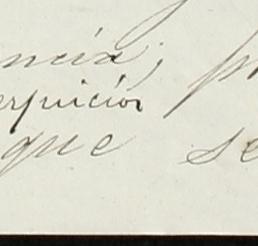 ncia; p
erjuicios
que se